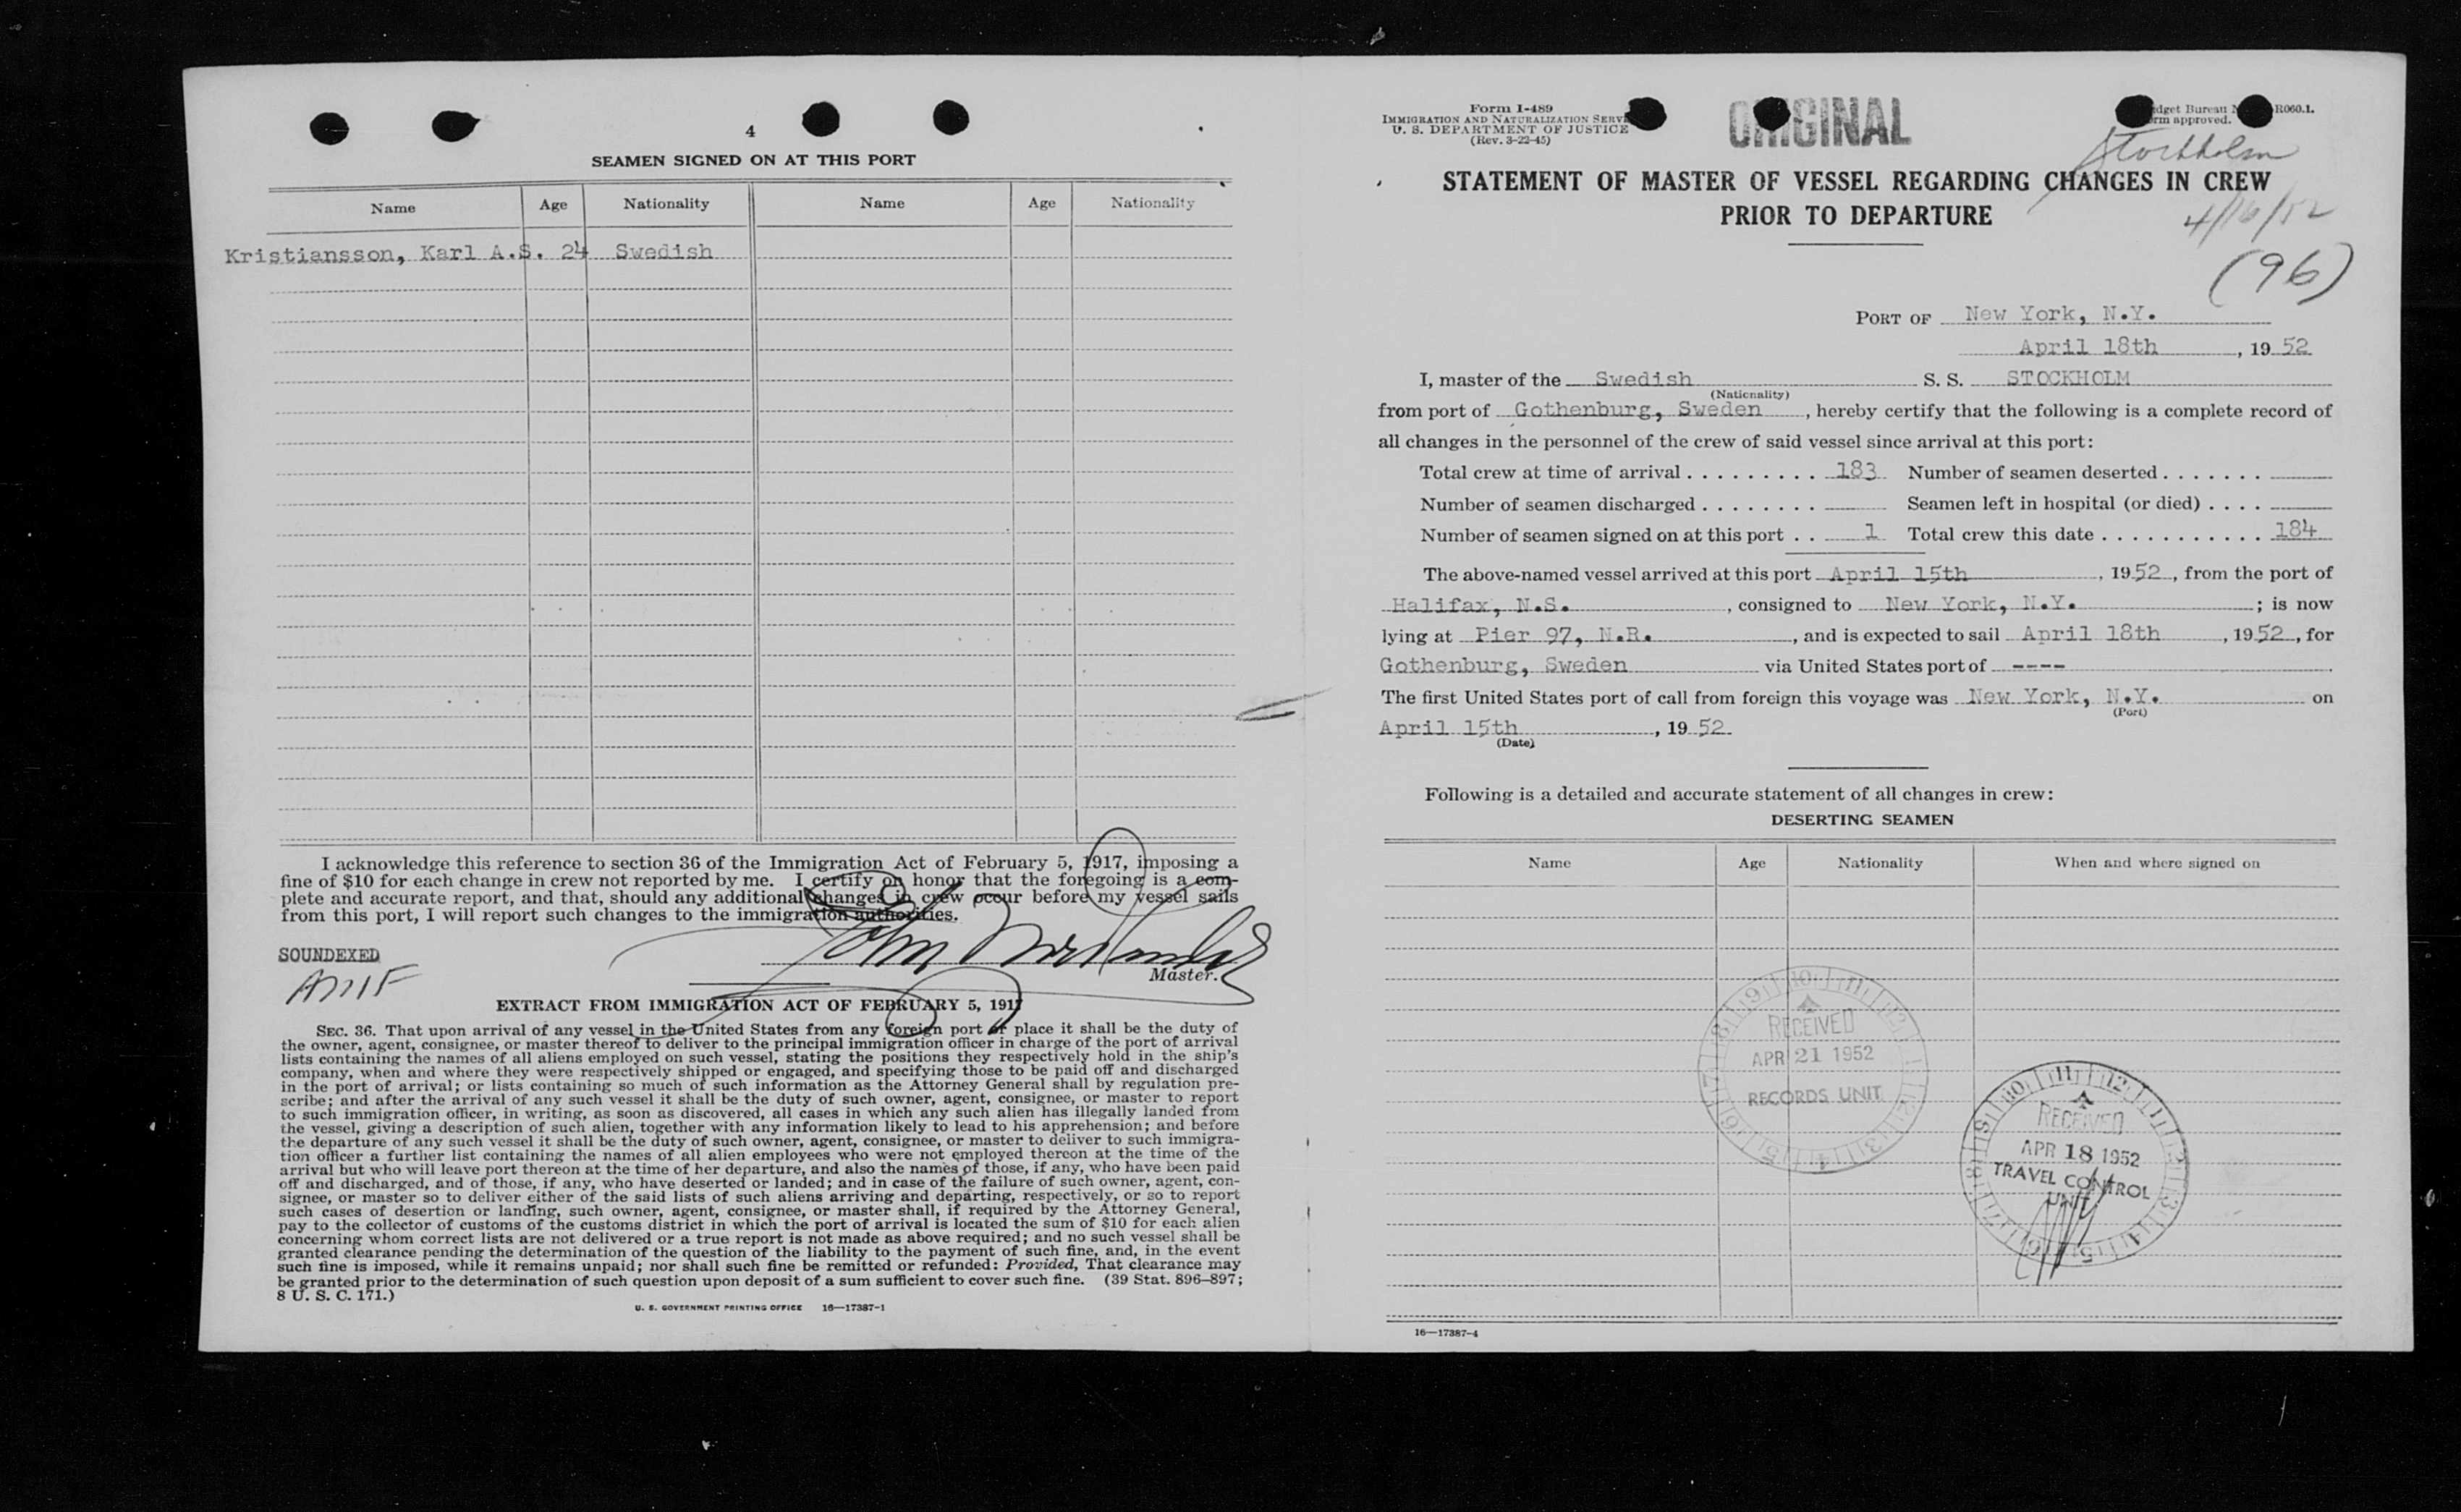 4
SEAMEN SIGNED ON AT THIS PORT
Name Age Nationality Name Age Nationality
Kristiansson, Karl A.S. 24 Swedish
I acknowledge this reference to section 36 of the Immigration Act of February 5, 1917, imposing a
fine of $10 for each change in crew not reported by me. I certify on honor that the foregoing is a com-
plete and accurate report, and that, should any additional changes in crew occur before my vessel sails
from this port, I will report such changes to the immigration authorities.
SOUNDEXED
John
Master.
EXTRACT FROM IMMIGRATION ACT OF FEBRUARY 5, 1917
SEC. 36. That upon arrival of any vessel in the United States from any foreign port or place it shall be the duty of
the owner, agent, consignee, or master thereof to deliver to the principal immigration officer in charge of the port of arrival
lists containing the names of all aliens employed on such vessel, stating the positions they respectively hold in the ship's
company, when and where they were respectively shipped or engaged, and specifying those to be paid off and discharged
in the port of arrival; or lists containing so much of such information as the Attorney General shall by regulation pre-
scribe; and after the arrival of any such vessel it shall be the duty of such owner, agent, consignee, or master to report
to such immigration officer, in writing, as soon as discovered, all cases in which any such alien has illegally landed from
the vessel, giving a description of such alien, together with any information likely to lead to his apprehension; and before
the departure of any such vessel it shall be the duty of such owner, agent, consignee, or master to deliver to such immigra-
tion officer a further list containing the names of all alien employees who were not employed thereon at the time of the
arrival but who will leave port thereon at the time of her departure, and also the names of those, if any, who have been paid
off and discharged, and of those, if any, who have deserted or landed; and in case of the failure of such owner, agent, con-
signee, or master so to deliver either of the said lists of such aliens arriving and departing, respectively, or so to report
such cases of desertion or landing, such owner, agent, consignee, or master shall, if required by the Attorney General,
pay to the collector of customs of the customs district in which the port of arrival is located the sum of $10 for each alien
concerning whom correct lists are not delivered or a true report is not made as above required; and no such vessel shall be
granted clearance pending the determination of the question of the liability to the payment of such fine, and, in the event
such fine is imposed, while it remains unpaid; nor shall such fine be remitted or refunded: Provided, That clearance may
be granted prior to the determination of such question upon deposit of a sum sufficient to cover such fine. (39 Stat. 896–897;
8 U. S. C. 171.)
U. S. GOVERNMENT PRINTING OFFICE 16—17387-1
Form I-489
IMMIGRATION AND NATURALIZATION SERV
U. S. DEPARTMENT OF JUSTICE
(Rev. 3-22-45)
ORIGINAL
dget Bureau N R060.1.
rm approved.
Stockholm
STATEMENT OF MASTER OF VESSEL REGARDING CHANGES IN CREW
PRIOR TO DEPARTURE
4/16/52
(96)
PORT OF New York, N.Y.
April 18th, 19 52
I, master of the Swedish S. S. STOCKHOLM
(Nationality)
from port of Gothenburg, Sweden, hereby certify that the following is a complete record of
all changes in the personnel of the crew of said vessel since arrival at this port:
Total crew at time of arrival . . . . . . . . . 183 Number of seamen deserted . . . . . . .
Number of seamen discharged . . . . . . . . Seamen left in hospital (or died) . . . .
Number of seamen signed on at this port . . 1 Total crew this date . . . . . . . . . . . 184
The above-named vessel arrived at this port April 15th, 1952, from the port of
Halifax, N.S., consigned to New York, N.Y.; is now
lying at Pier 97, N.R., and is expected to sail April 18th, 1952, for
Gothenburg, Sweden via United States port of ----.
The first United States port of call from foreign this voyage was New York, N.Y. on
(Port)
April 15th, 19 52.
(Date)
Following is a detailed and accurate statement of all changes in crew:
DESERTING SEAMEN
Name Age Nationality When and where signed on
RECEIVED
APR 21 1952
RECORDS UNIT
RECEIVED
APR 18 1952
TRAVEL CONTROL
UNIT
16—17387-4